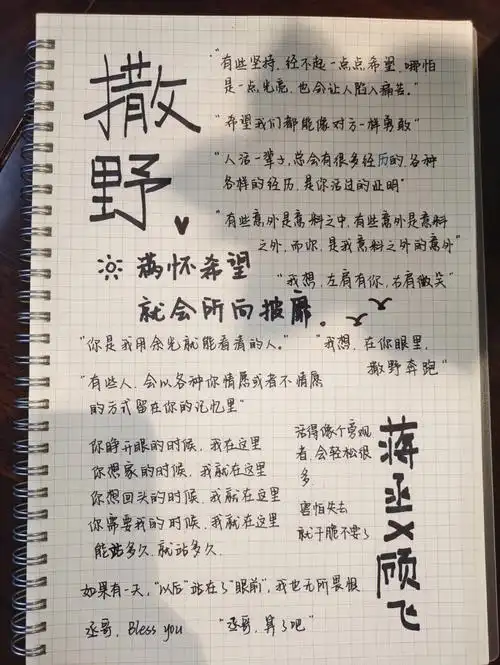 撒野
"有些坚持，经不起一点点希望，哪怕
是一点光亮，也会让人陷入痛苦。"
"希望我们都能像对方一样勇敢"
"人活一辈子，总会有很多经历的，各种
各样的经历，是你活过的证明"
"有些意外是意料之中，有些意外是意料
之外，而你，是我意料之外的意外"
"我想，左肩有你，右肩微笑"
满怀希望
就会所向披靡。
"你是我用余光就能看清的人。"
"我想，在你眼里，
撒野奔跑"
"有些人，会以各种你情愿或者不情愿
的方式留在你的记忆里"
你睁开眼的时候，我在这里
你想家的时候，我就在这里
你想回头的时候，我就在这里
你需要我的时候，我就在这里
能站多久，就站多久
活得像个旁观
者，会轻松很
多
害怕失去
就干脆不要了
蒋丞X顾飞
如果有一天，"以后"站在了"眼前"，我也无所畏惧
丞哥，Bless you
"丞哥，算了吧"